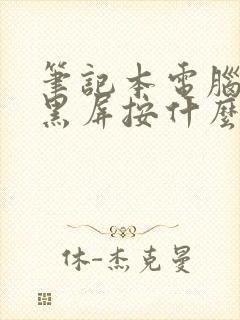 筆記本電腦
黑屏按什麼
休-杰克曼